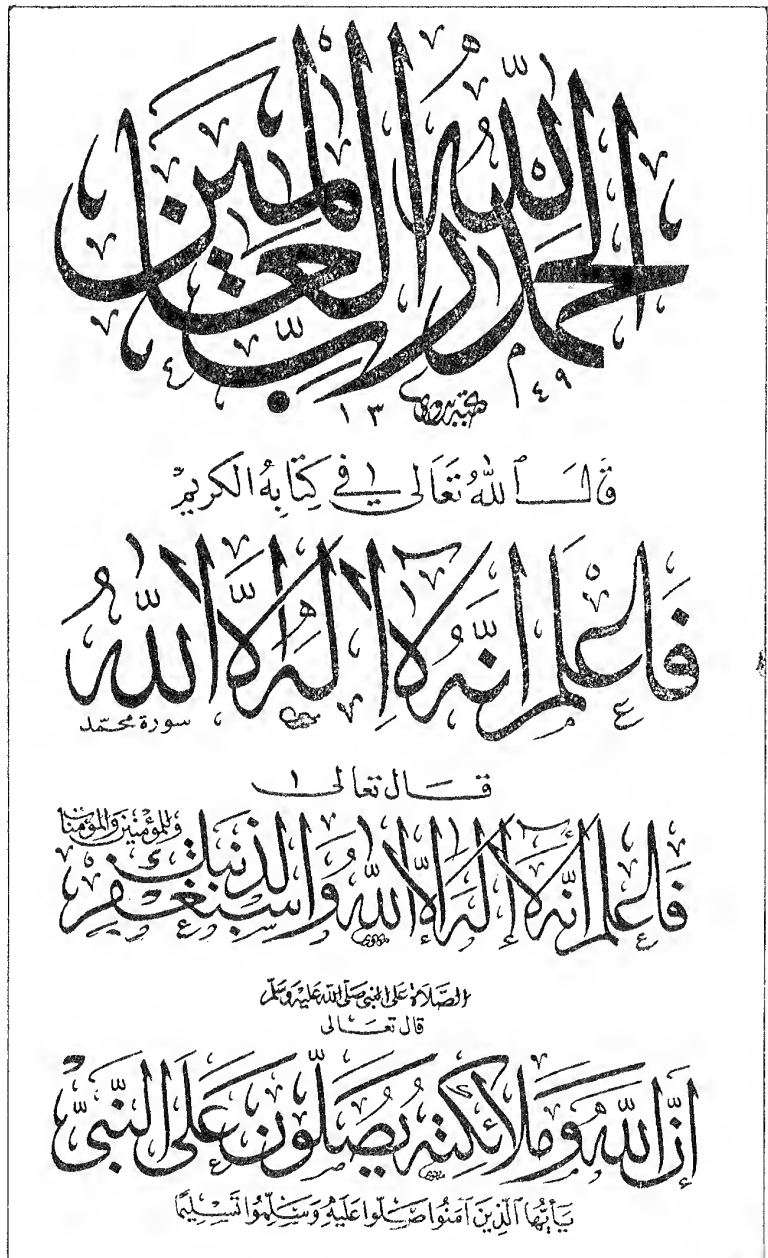 الحمد لله رب العالمين
١٣ ٤٩
قَالَ اللهُ تَعَالى فِي كِتَابِهُ الكريمْ
فَاعْلَمْ أَنَّهُ لَا إِلَهَ إِلَّا اللَّهُ
سورة محمّد
قال تعالى
فَاعلم أنَّه لا إله إلّا الله وَاستغفر لذنبك وللمؤمنين والمؤمنات
الصَّلاة على النبي صَلَّى الله عليه وَسلّم
قال تعَالى
إنَّ اللَّهَ وَمَلائِكته يُصَلّون عَلَى النَّبيّ
يَأيّهَا الَّذينَ آمَنُوا صَلّوا عَلَيْهِ وَسَلّمُوا تَسْليمًا